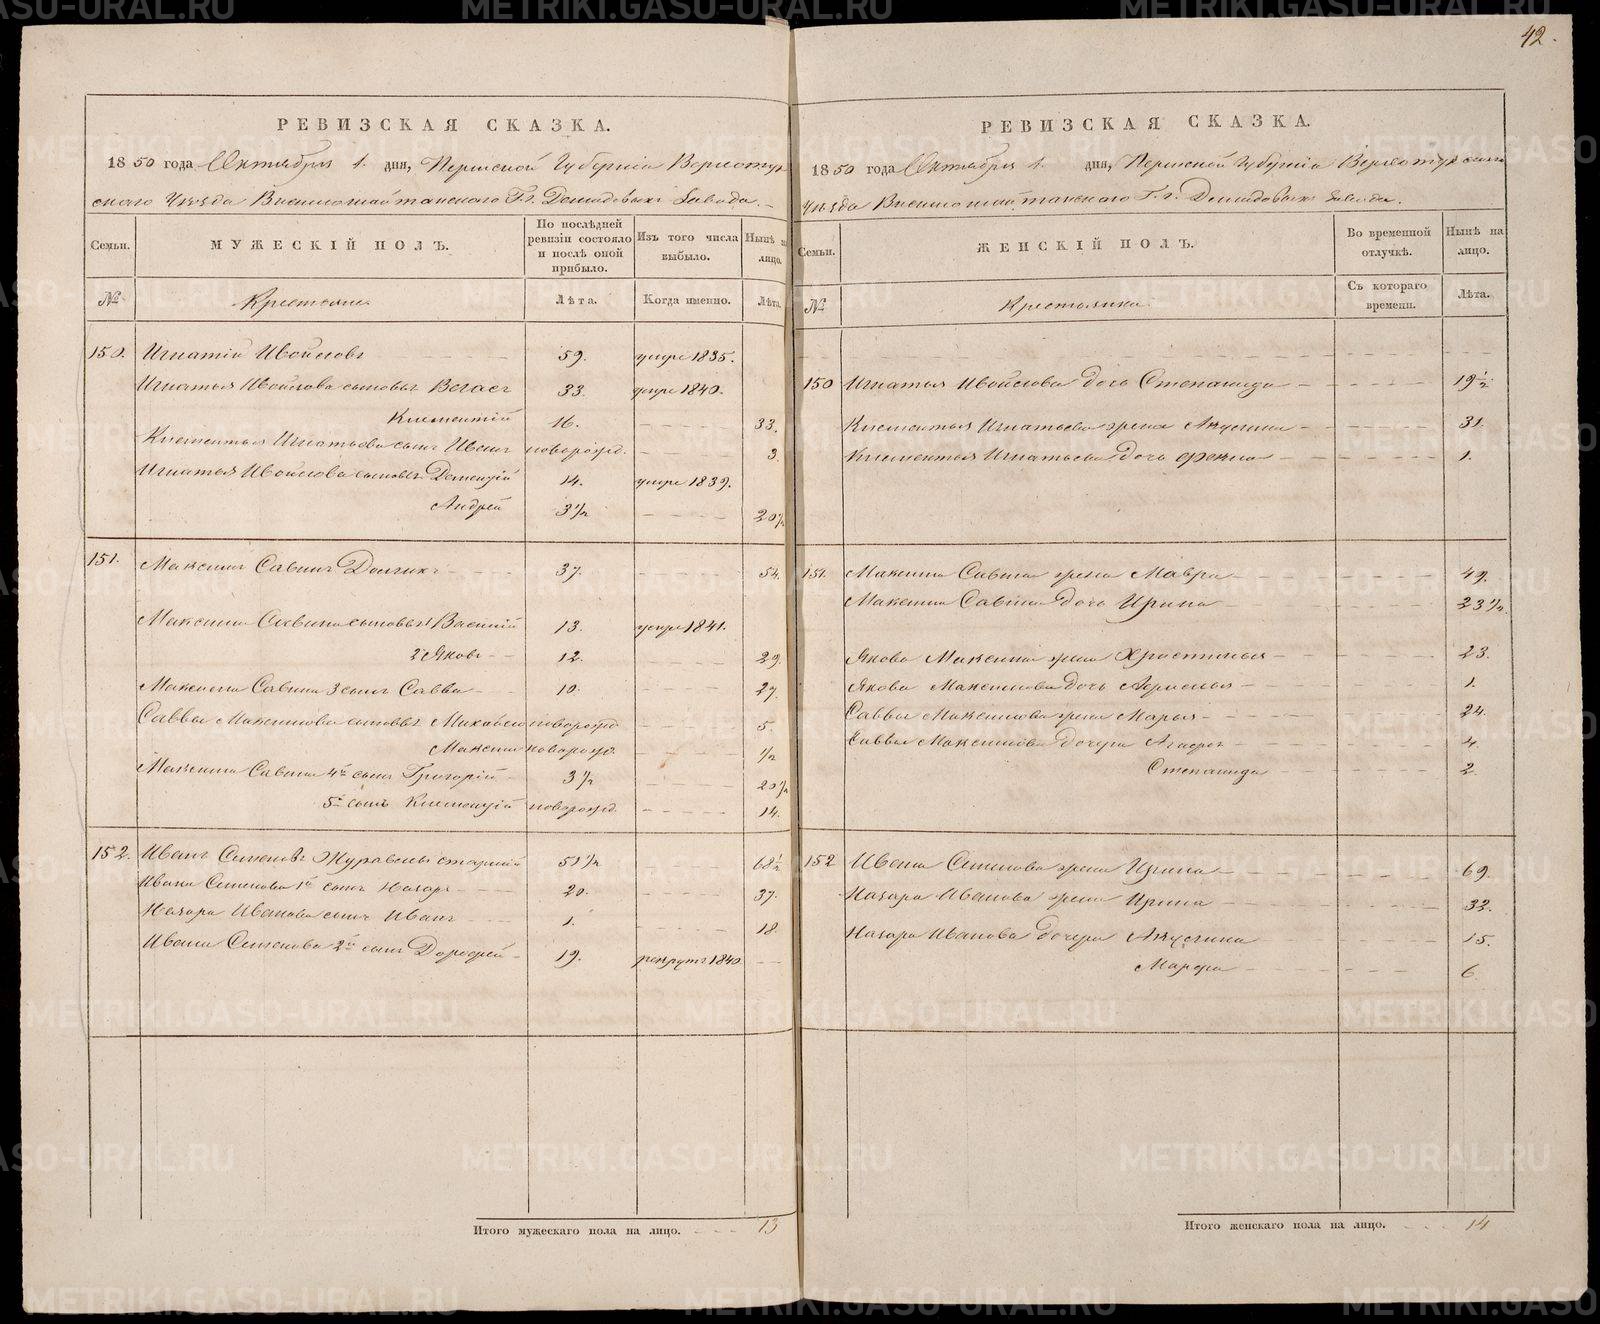 42.
РЕВИЗСКАЯ СКАЗКА.
1850 года Октября 1. дня, Пермской Губерніи Верхотур
скаго Уѣзда Висимошайтанскаго Г.г. Демидовыхъ Завода.
Семьи.
МУЖЕСКІЙ ПОЛЪ.
По послѣдней ревизіи состояло и послѣ оной прибыло.
Изъ того числа выбыло.
Нынѣ на лицо.
№
Крестьяне
Лѣта.
Когда именно.
Лѣта.
150. Игнатій 59. умре 1835.
Игнатья сыновья 33. умре 1840.
Климентій 16. 33.
Климентья Игнатьева сынъ Иванъ новорожд. 3.
Игнатья сыновья Дементій 14. умре 1839.
Андрей 3 1/2 20 1/2
151. Максимъ Савинъ Долгихъ 37. 54.
Максима Савина сыновья Василій 13. умре 1841.
2 Яковъ 12. 29.
Максима Савина 3 сынъ Савва 10. 27.
Саввы Максимова сыновья Михайло новорожд. 5.
Максимъ новорожд. 1/2
Максима Савина 4й сынъ Григорій 3 1/2 20 1/2
5й сынъ Климентій новорожд. 14.
152. Иванъ Семеновъ Журавлевъ старшій 51 1/2 68 1/2
Ивана Семенова 1й сынъ Назаръ 20. 37.
Назара Иванова сынъ Иванъ 1. 18
Ивана Семенова 2й сынъ Дорофей 19. рекрутъ 1840
Итого мужескаго пола на лицо. 13
РЕВИЗСКАЯ СКАЗКА.
1850 года Октября 1. дня, Пермской Губерніи Верхотурскаго
Уѣзда Висимошайтанскаго Г.г. Демидовыхъ Завода.
Семьи.
ЖЕНСКІЙ ПОЛЪ.
Во временной отлучкѣ.
Нынѣ на лицо.
№
Крестьянки
Съ котораго времени.
Лѣта.
150 Игнатья дочь Степанида 19 1/2
Климентья Игнатьева жена Акулина 31.
Климентья Игнатьева дочь Фекла 1.
151. Максима Савина жена Мавра 49.
Максима Савина дочь Ирина 23 1/2
Якова Максимова жена Христинья 23.
Якова Максимова дочь 1.
Саввы Максимова жена Марья 24.
Саввы Максимова дочери Агафья 4.
Степанида 2.
152 Ивана Семенова жена Ирина 69.
Назара Иванова жена Ирина 32.
Назара Иванова дочери Акулина 15.
Марфа 6.
Итого женскаго пола на лицо. 14
METRIKI.GASO-URAL.RU